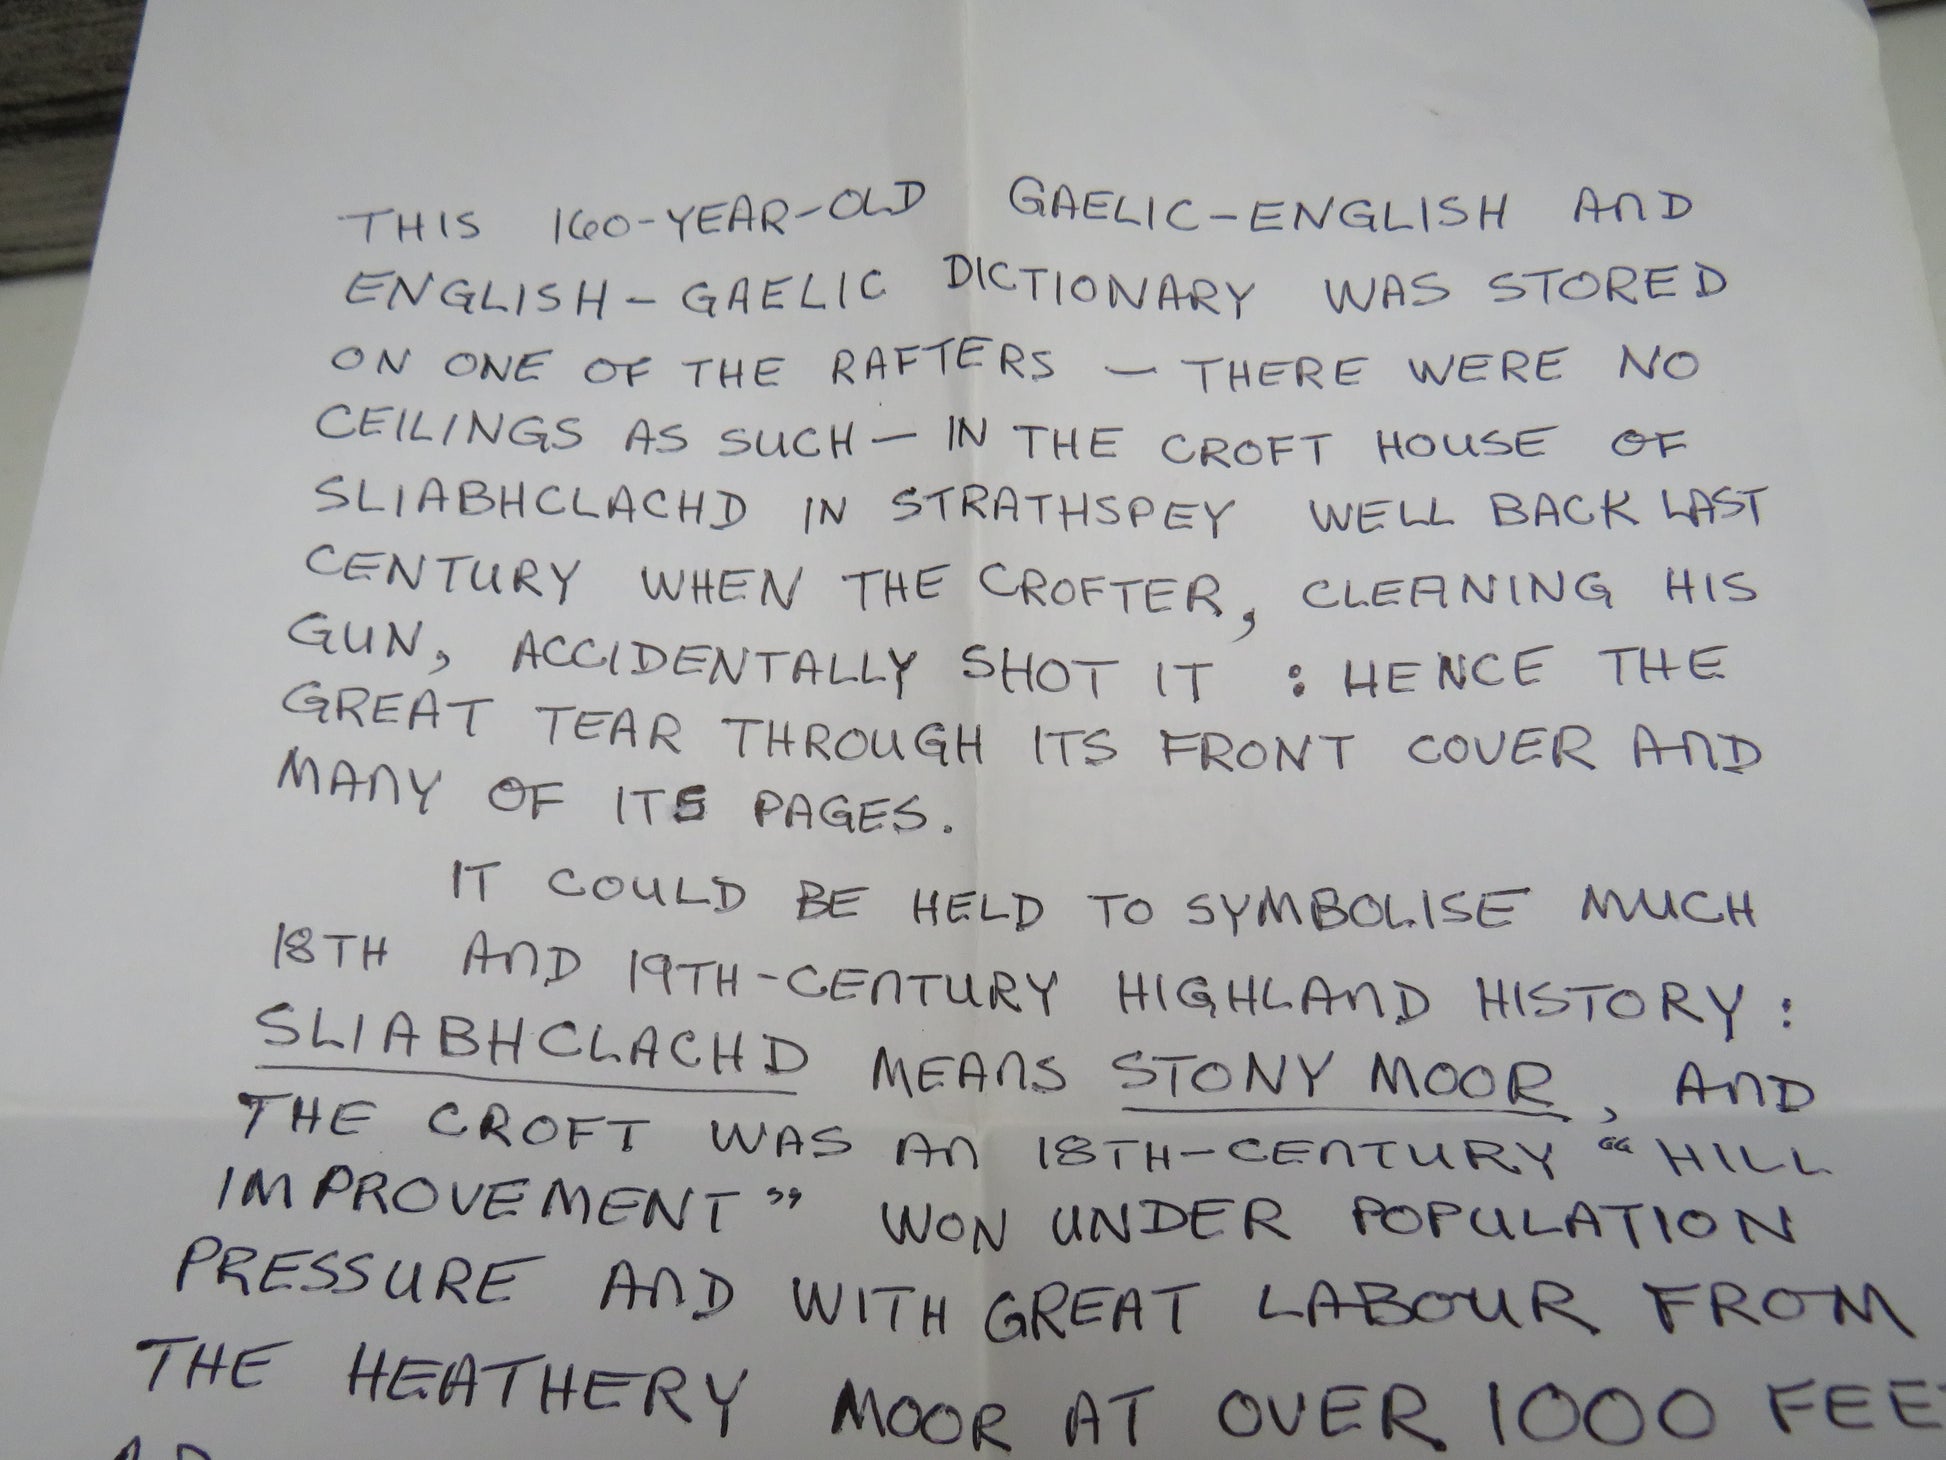 THIS 160-YEAR-OLD GAELIC-ENGLISH AND
ENGLISH-GAELIC DICTIONARY WAS STORED
ON ONE OF THE RAFTERS — THERE WERE NO
CEILINGS AS SUCH — IN THE CROFT HOUSE OF
SLIABHCLACHD IN STRATHSPEY WELL BACK LAST
CENTURY WHEN THE CROFTER, CLEANING HIS
GUN, ACCIDENTALLY SHOT IT : HENCE THE
GREAT TEAR THROUGH ITS FRONT COVER AND
MANY OF ITS PAGES.
IT COULD BE HELD TO SYMBOLISE MUCH
18TH AND 19TH-CENTURY HIGHLAND HISTORY :
SLIABHCLACHD MEANS STONY MOOR, AND
THE CROFT WAS AN 18TH-CENTURY "HILL
IMPROVEMENT" WON UNDER POPULATION
PRESSURE AND WITH GREAT LABOUR FROM
THE HEATHERY MOOR AT OVER 1000 FEET